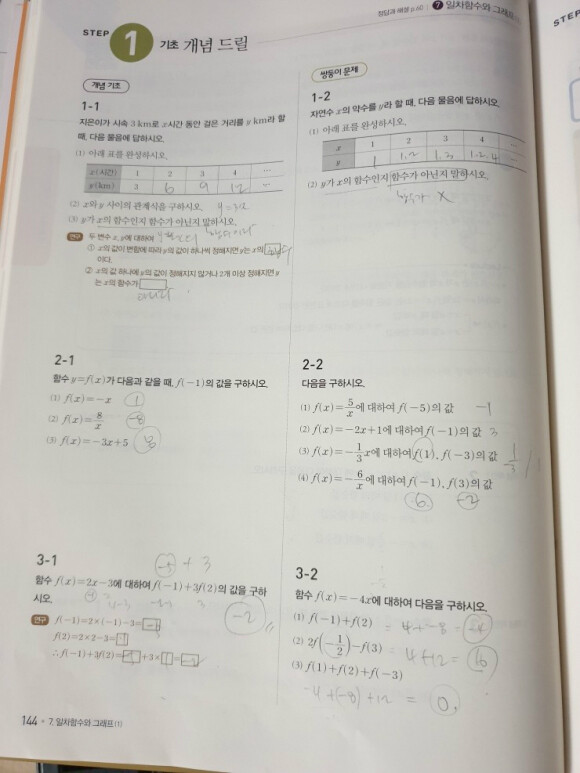 정답과 해설 p.60 7 일차함수와 그래프(1)
STEP 1 기초 개념 드릴
개념 기초
1-1
지은이가 시속 3 km로 x시간 동안 걸은 거리를 y km라 할
때, 다음 물음에 답하시오.
(1) 아래 표를 완성하시오.
x(시간) 1 2 3 4 ⋯
y(km) 3 6 9 12 ⋯
(2) x와 y 사이의 관계식을 구하시오. y=3x
(3) y가 x의 함수인지 함수가 아닌지 말하시오.
연구 두 변수 x, y에 대하여
① x의 값이 변함에 따라 y의 값이 하나씩 정해지면 y는 x의
이다.
② x의 값 하나에 y의 값이 정해지지 않거나 2개 이상 정해지면 y
는 x의 함수가
아니다
2-1
함수 y=f(x)가 다음과 같을 때, f(-1)의 값을 구하시오.
(1) f(x)=-x 1
(2) f(x)=8/x -8
(3) f(x)=-3x+5 8
3-1
-5+3
함수 f(x)=2x-3에 대하여 f(-1)+3f(2)의 값을 구하
시오.
-2
연구 f(-1)=2×(-1)-3=-5
f(2)=2×2-3=1
∴ f(-1)+3f(2)=□+3×□=□
쌍둥이 문제
1-2
자연수 x의 약수를 y라 할 때, 다음 물음에 답하시오.
(1) 아래 표를 완성하시오.
x 1 2 3 4 ⋯
y 1 1,2 1,3 1,2,4 ⋯
(2) y가 x의 함수인지 함수가 아닌지 말하시오.
함수가 X
2-2
다음을 구하시오.
(1) f(x)=5/x에 대하여 f(-5)의 값 -1
(2) f(x)=-2x+1에 대하여 f(-1)의 값 3
(3) f(x)=-1/3x에 대하여 f(1), f(-3)의 값 1/3 / 1
(4) f(x)=-6/x에 대하여 f(-1), f(3)의 값
6 -2
3-2
함수 f(x)=-4x에 대하여 다음을 구하시오.
(1) f(-1)+f(2) = 4+-8 = -4
(2) 2f(-1/2)-f(3) = 4+12 = 16
(3) f(1)+f(2)+f(-3)
-4+(-8)+12 = 0
144 • 7. 일차함수와 그래프(1)